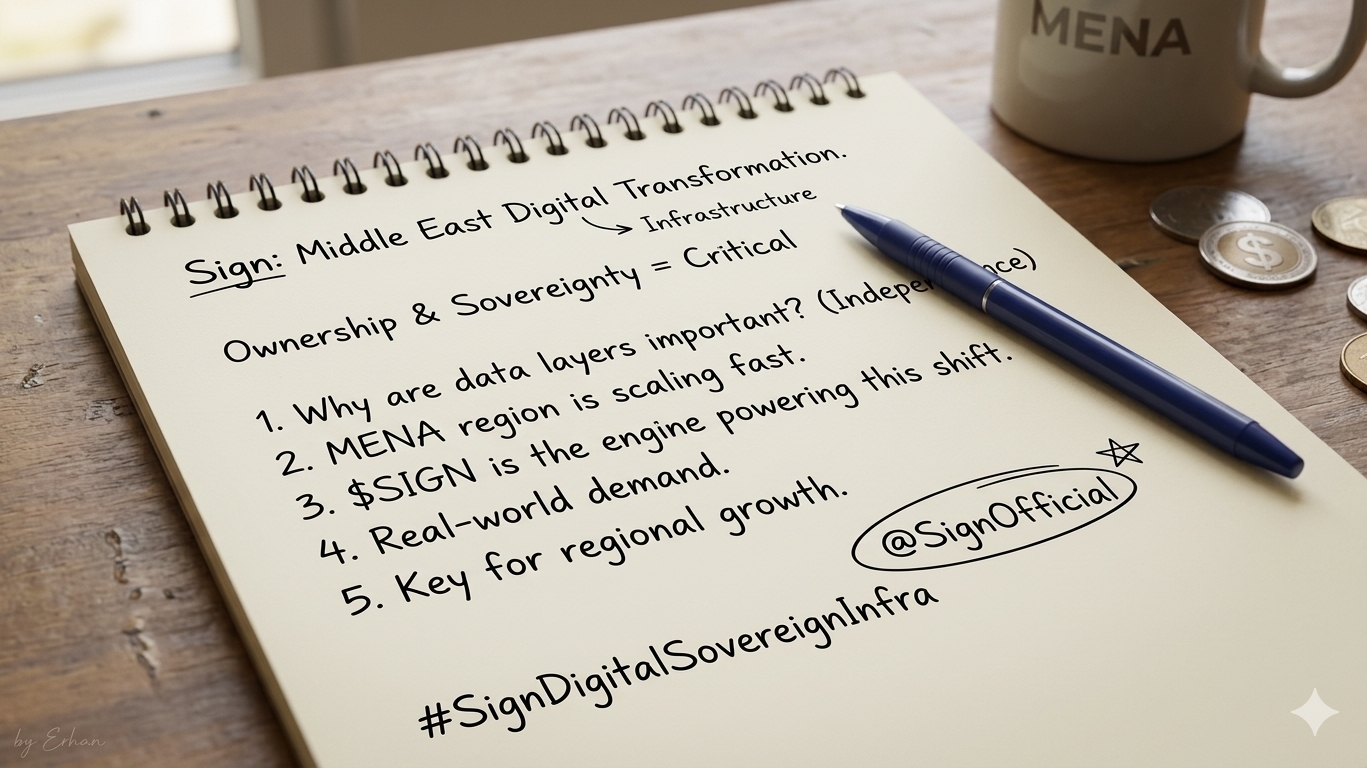 MENA
Sign: Middle East Digital Transformation.
Infrastructure
Ownership & Sovereignty = Critical
1. Why are data layers important? (Indepe nce)
2. MENA region is scaling fast.
3. $SIGN is the engine powering this shift.
4. Real-world demand.
5. Key for regional growth.
@SignOfficial
#SignDigitalSovereignInfra
$
by Erhan